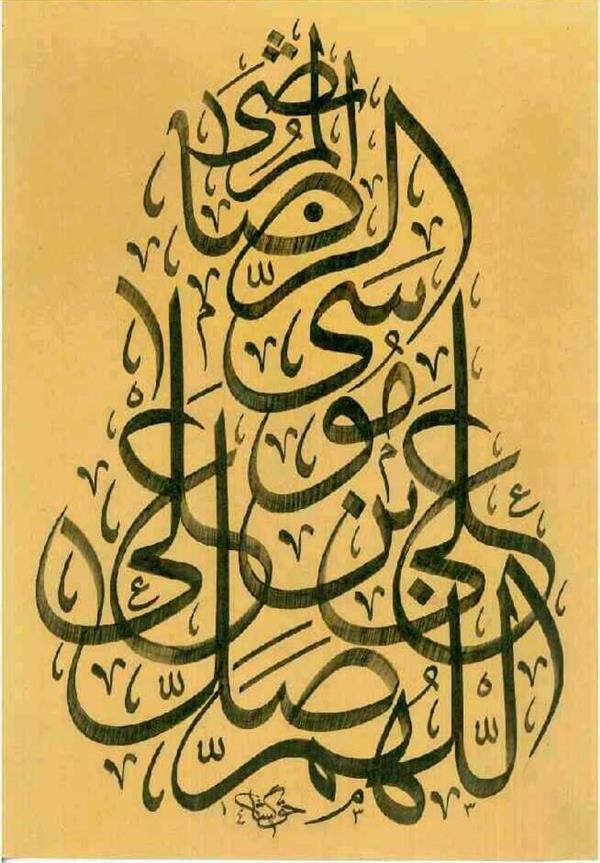 اللهم صل على
علی بن موسی
الرضا المرتضی